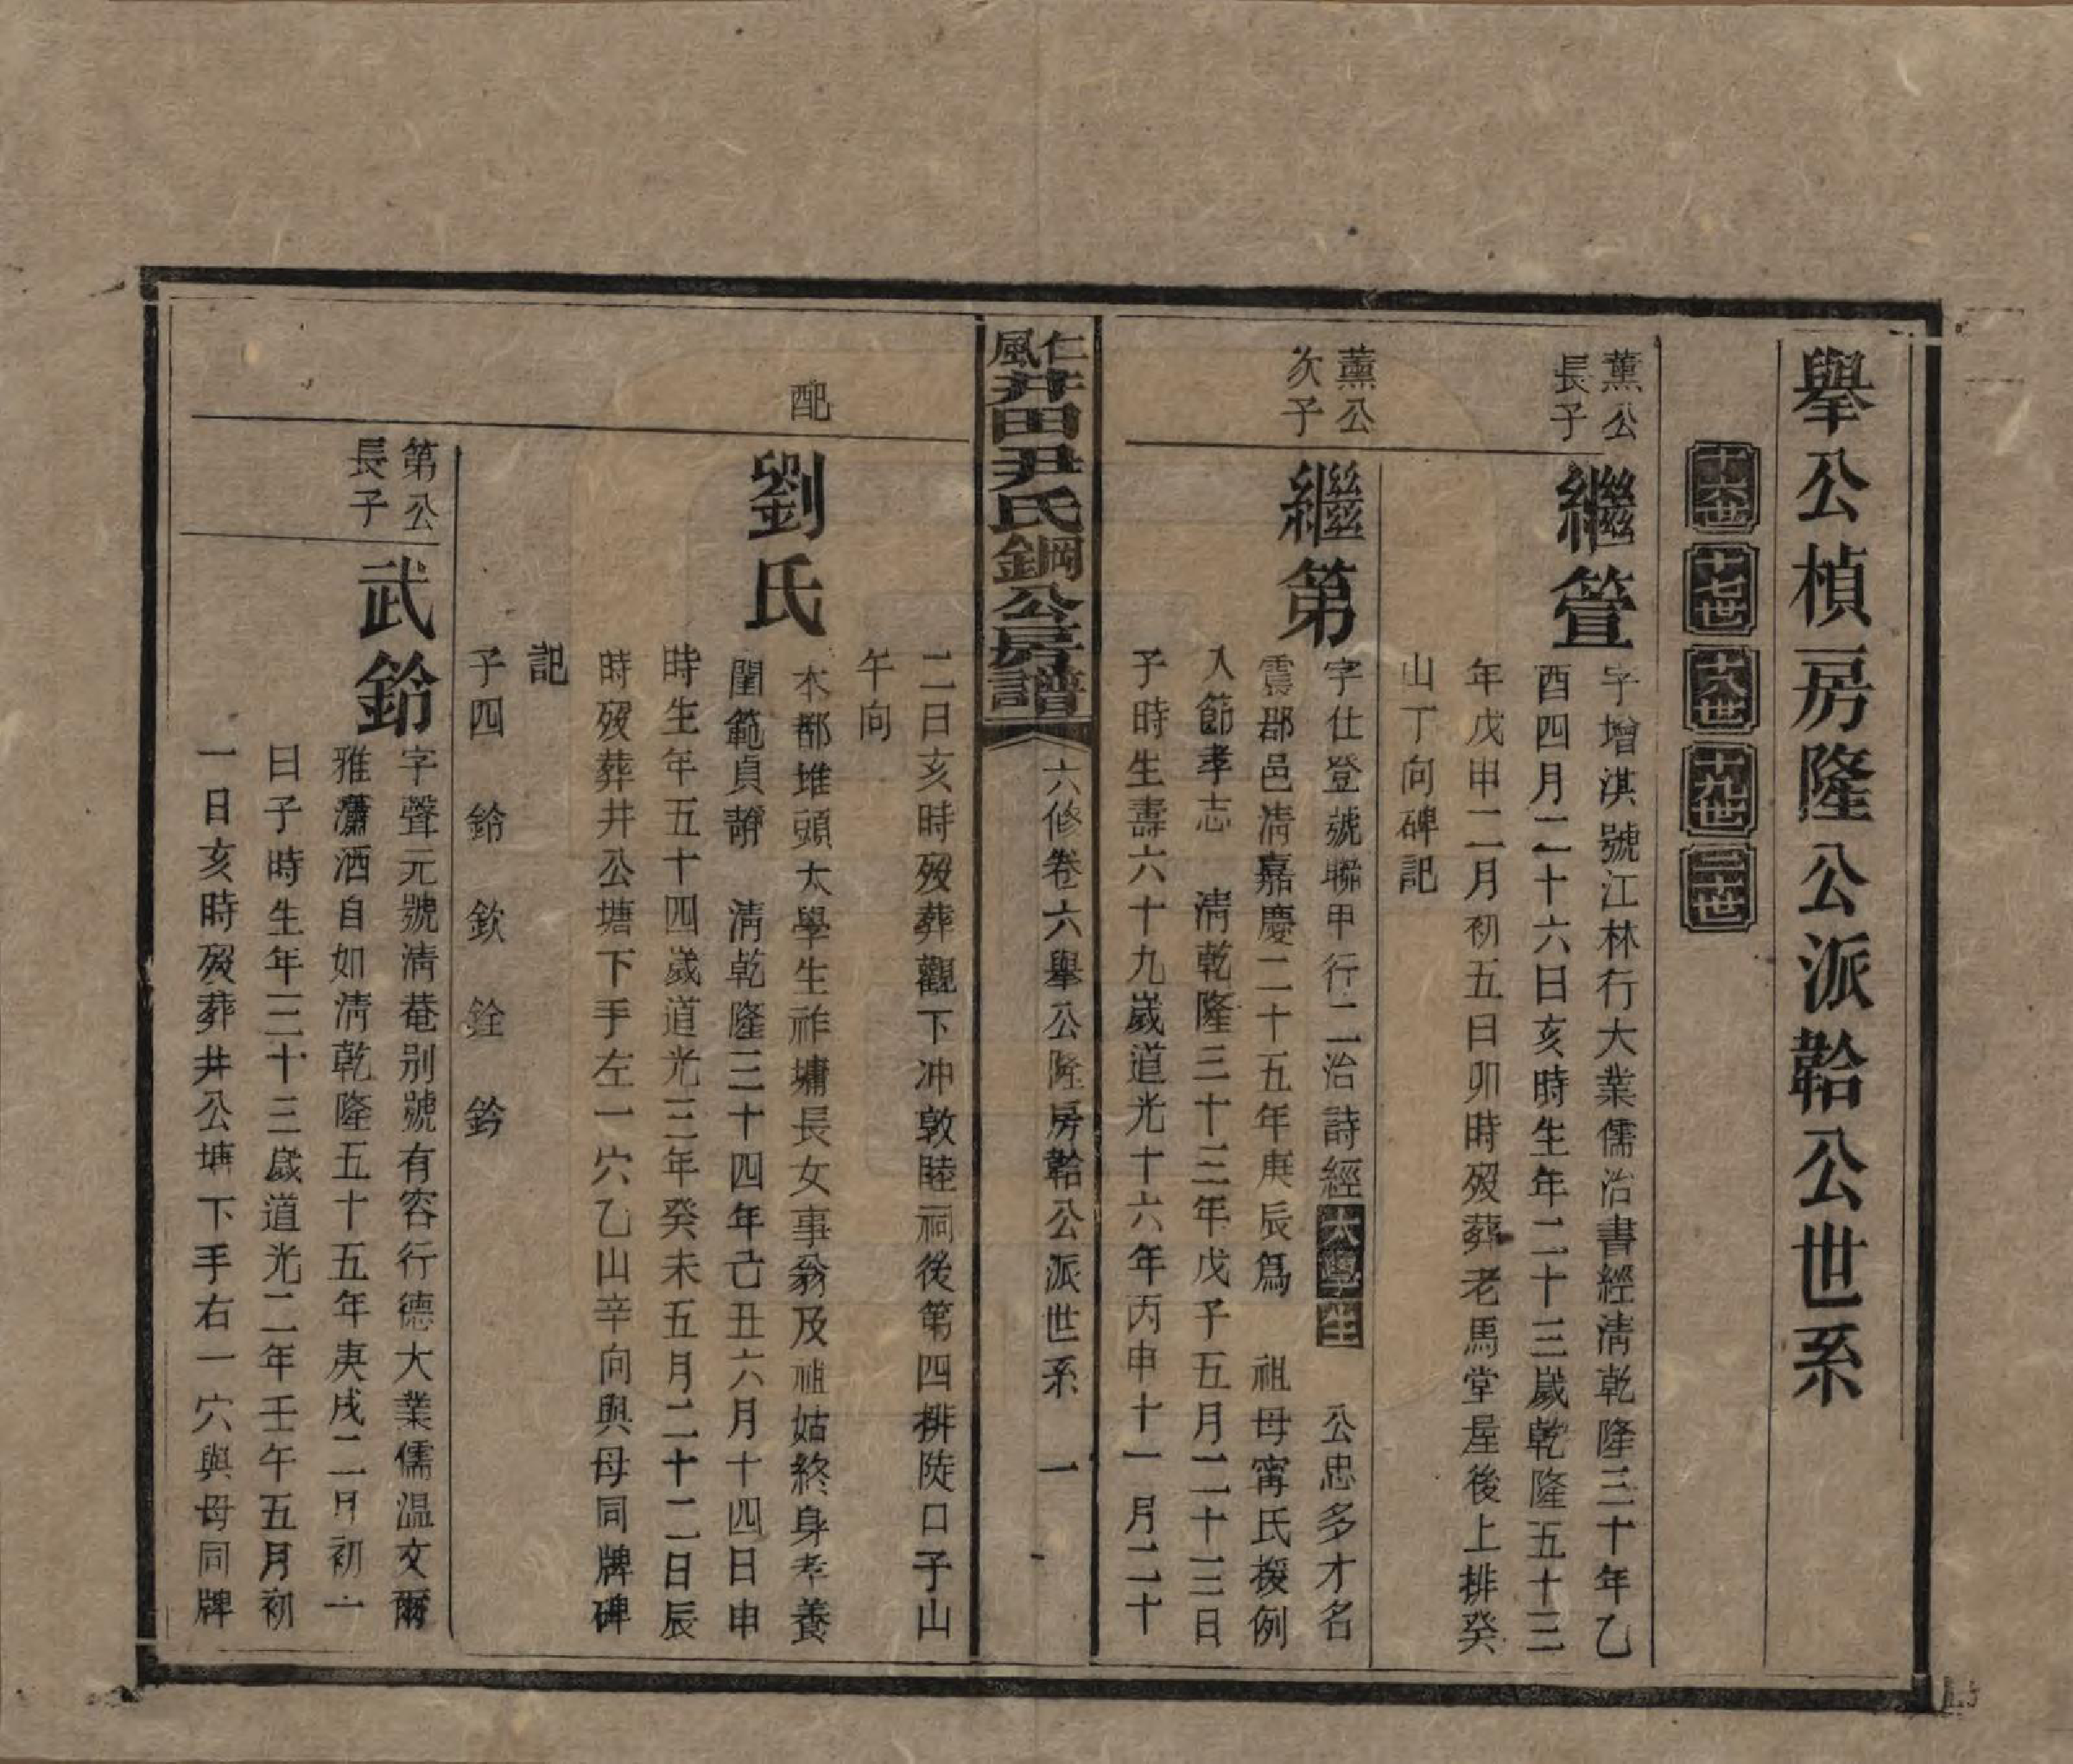 舉公楨房隆公派韐公世系
十六世 十七世 十八世 十九世 二十世
薰公
長子
繼萱
字增淇號江林行大業儒治書經清乾隆三十年乙
酉四月二十六日亥時生年二十三歲乾隆五十三
年戊申二月初五日卯時歿葬老馬堂屋後上排癸
山丁向碑記
薰公
次子
繼第
字仕登號聯甲行二治詩經大學生 公忠多才名
震郡邑清嘉慶二十五年庚辰爲 祖母甯氏援例
入節孝志 清乾隆三十三年戊子五月二十三日
子時生壽六十九歲道光十六年丙申十一月二十
仁風井田尹氏鋼公房譜
六修卷六舉公隆房韐公派世系 一
二日亥時歿葬觀下冲敦睦祠後第四排陡口子山
午向
配
劉氏
木都堆頭太學生祚墉長女事翁及祖姑終身孝養
閨範貞靜 清乾隆三十四年己丑六月十四日申
時生年五十四歲道光三年癸未五月二十二日辰
時歿葬井公塘下手左一穴乙山辛向與母同牌碑
記
子四 鈴 欽 銓 鈐
第公
長子
武鈴
字聲元號清菴别號有容行德大業儒温文爾
雅瀟洒自如清乾隆五十五年庚戌二月初一
日子時生年三十三歲道光二年壬午五月初
一日亥時歿葬井公塘下手右一穴與母同牌